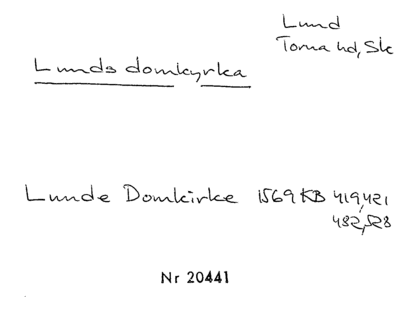 Lund
Torna hd, Sk
Lunds domkyrka
Lunde Domkirke 1569 KB 419, 421
482, 528
Nr 20441